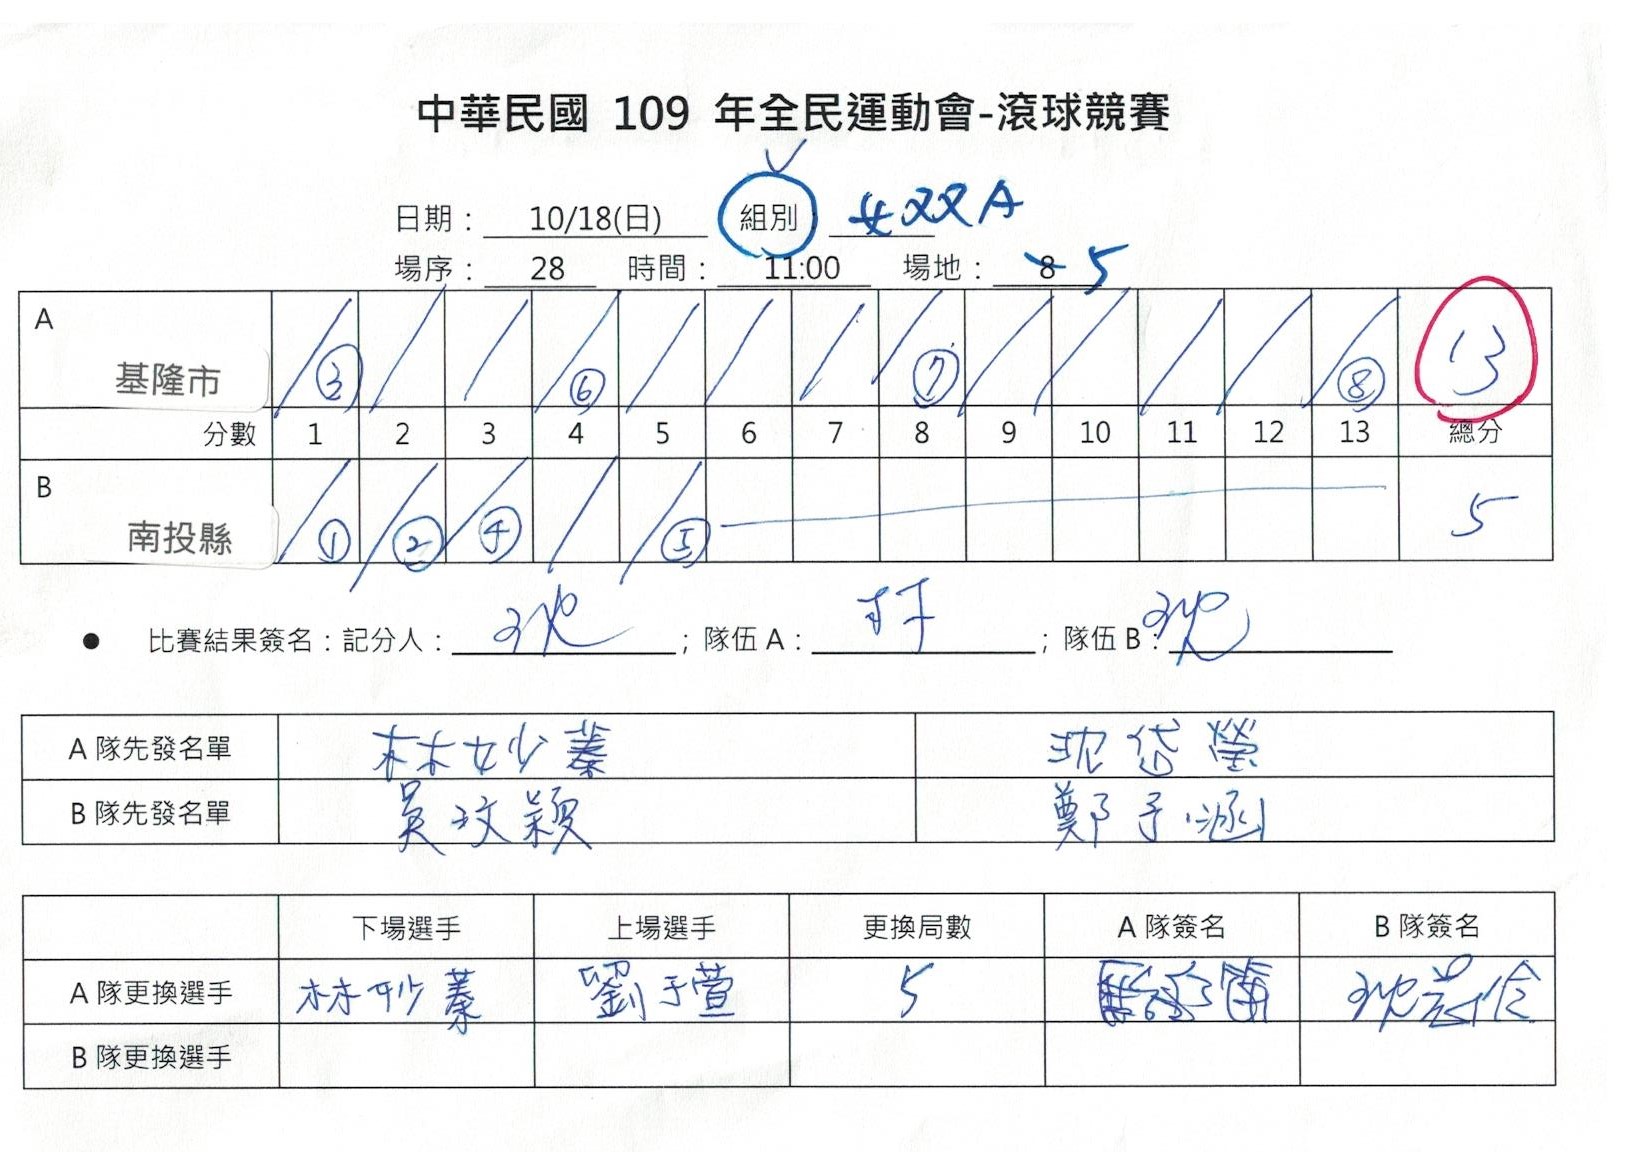 中華民國 109 年全民運動會-滾球競賽
日期： 10/18(日) 組別： 女双 A
場序： 28 時間： 11:00 場地： 8 5
A 基隆市 ③ ⑥ ⑦ ⑧ 13
分數 1 2 3 4 5 6 7 8 9 10 11 12 13 總分
B 南投縣 ① ② ④ ⑤ 5
● 比賽結果簽名：記分人： 沈 ；隊伍 A： ；隊伍 B： 沈
A 隊先發名單 林妙蓁 沈岱瑩
B 隊先發名單 吳玟穎 鄭予涵
下場選手 上場選手 更換局數 A 隊簽名 B 隊簽名
A 隊更換選手 林妙蓁 劉于萱 5
B 隊更換選手